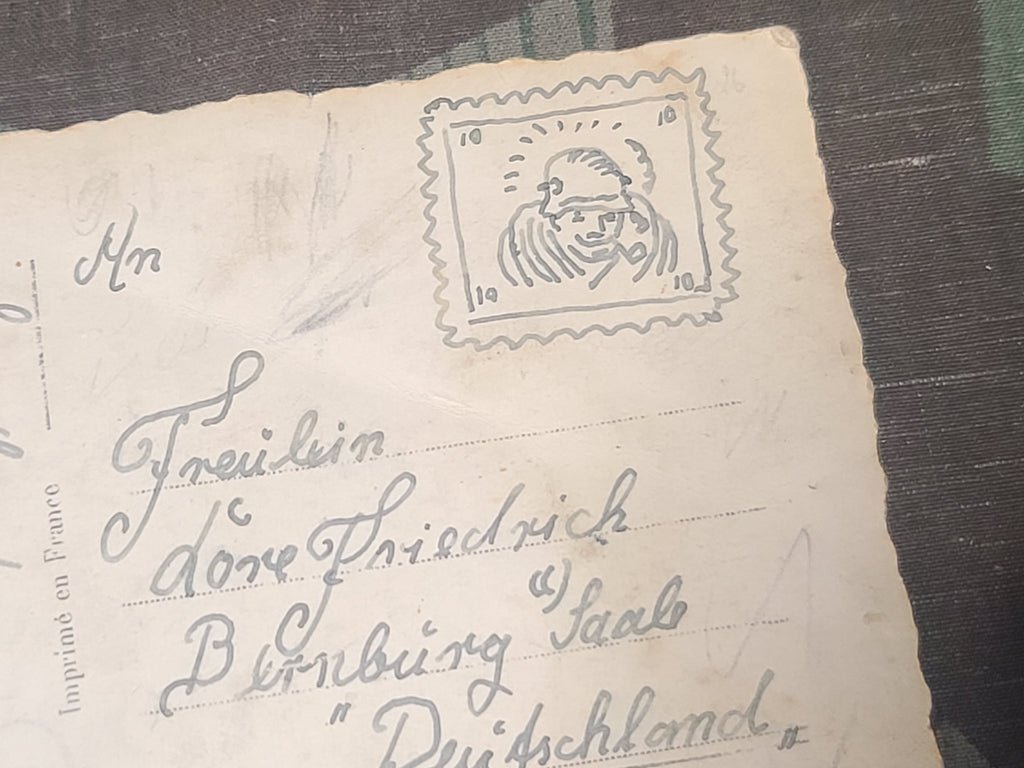 10 10
10 10
An
Fräulein
Lore Friedrich
Bernburg a/ Saale
"Deutschland„
Imprimé en France